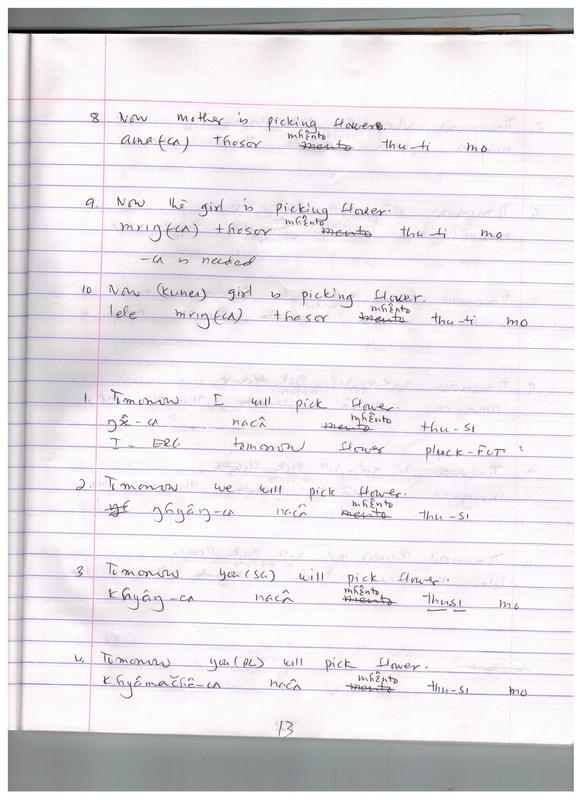 8 Now mother is picking flowers.
ama(-cʌ) thosor mɦɛ̂nto mento thu-ti mo
9. Now the girl is picking flower.
mrɪŋ(-cʌ) thosor mɦɛ̂nto mento thu-ti mo
-cʌ is needed
10 Now (kunei) girl is picking flower.
lele mrɪŋ(-cʌ) thosor mɦɛ̂nto mento thu-ti mo
1. Tomorrow I will pick flower.
ŋʌ̂-cʌ nacʌ̂ mɦɛ̂nto mento thu-sɪ
I-ERG tomorrow flower pluck-FUT
2. Tomorrow we will pick flower.
ŋɦyâŋ-cʌ nacʌ̂ mɦɛ̂nto mento thu-sɪ
3 Tomorrow you(SG) will pick flower.
kɦyâŋ-cʌ nacʌ̂ mɦɛ̂nto mento thusɪ mo
4. Tomorrow you(PL) will pick flower.
kɦyâmačɦê-cʌ nacʌ̂ mɦɛ̂nto mento thu-sɪ mo
13